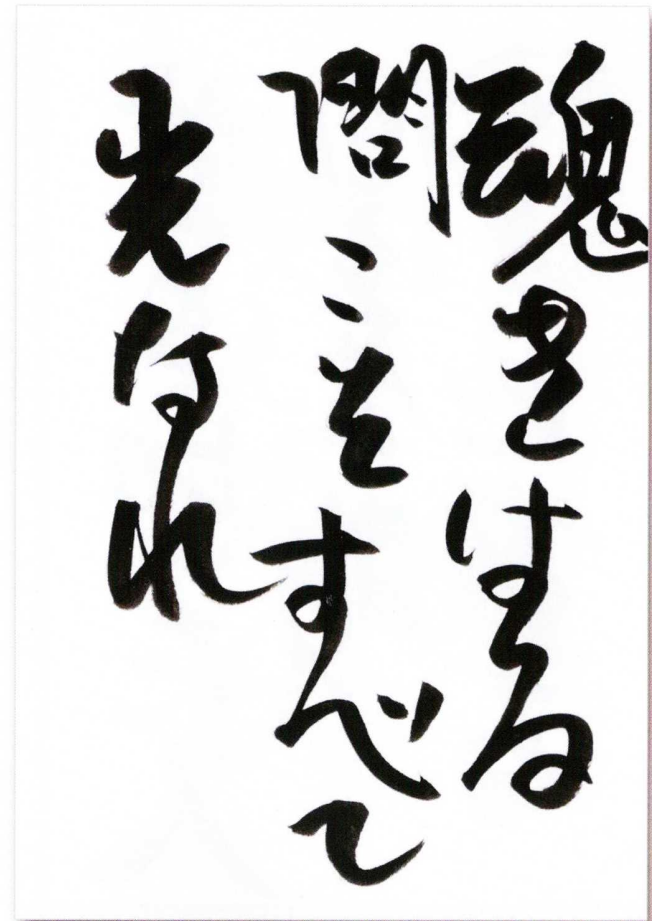 魂きはる
闇こそすべて
光なれ